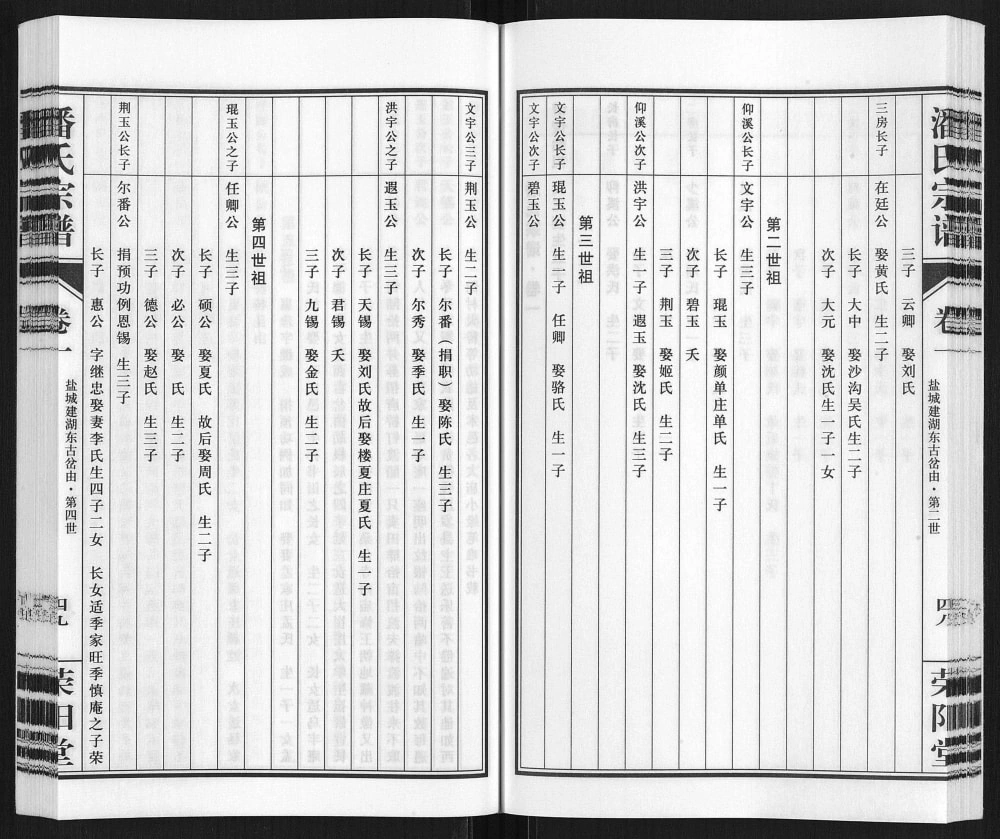 潘氏宗谱
卷一
盐城建湖东古岔由·第二世
四八
荣阳堂
三子 云卿 娶刘氏
三房长子 在廷公 娶黄氏 生二子
长子 大中 娶沙沟吴氏生二子
次子 大元 娶沈氏生一子一女
第二世祖
仰溪公长子 文宇公 生三子
长子 琨玉 娶颜单庄单氏 生一子
次子 碧玉 夭
三子 荆玉 娶姬氏 生二子
仰溪公次子 洪宇公 生一子 遐玉 娶沈氏 生三子
第三世祖
文宇公长子 琨玉公 生一子 任卿 娶骆氏 生一子
文宇公次子 碧玉公
文宇公三子 荆玉公 生二子
长子 尔番（捐职）娶陈氏 生三子
次子 尔秀 娶季氏 生一子
洪宇公之子 遐玉公 生三子
长子 天锡 娶刘氏故后娶楼夏庄夏氏 生一子
次子 君锡 夭
三子 九锡 娶金氏 生二子
第四世祖
琨玉公之子 任卿公 生三子
长子 硕公 娶夏氏 故后娶周氏 生二子
次子 必公 娶 氏 生二子
三子 德公 娶赵氏 生三子
荆玉公长子 尔番公 捐预功例恩锡 生三子
长子 惠公 字继忠娶妻李氏生四子二女 长女适季家旺季慎庵之子荣
潘氏宗谱
卷一
盐城建湖东古岔由·第四世
四九
荣阳堂